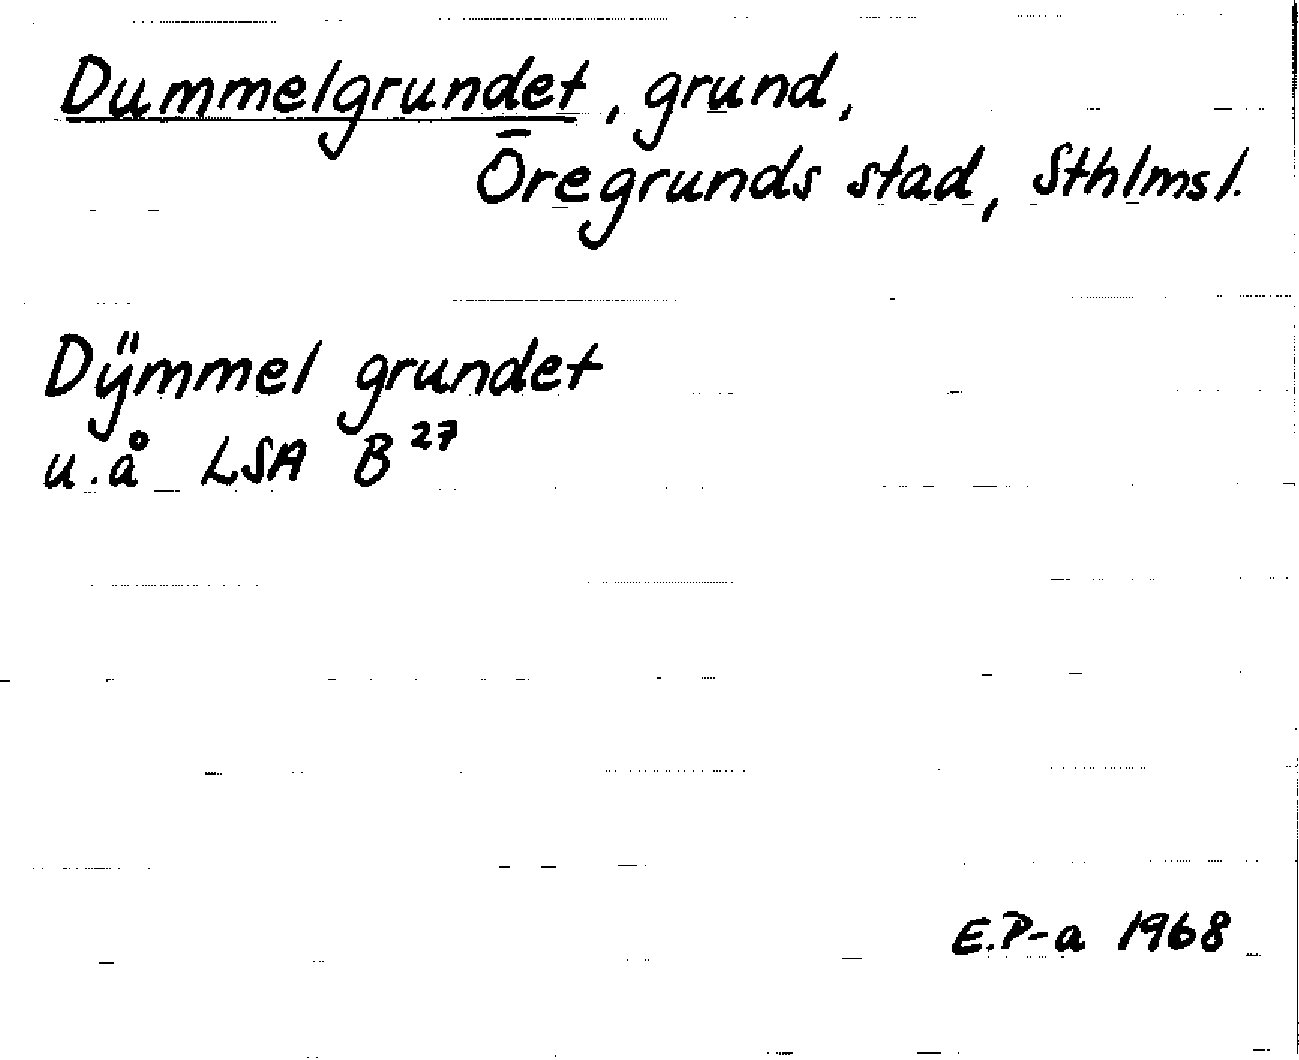 Dummelgrundet, grund,
Öregrunds stad, Sthlmsl.
Dÿmmel grundet
u.å LSA B²⁷
E.P-a 1968